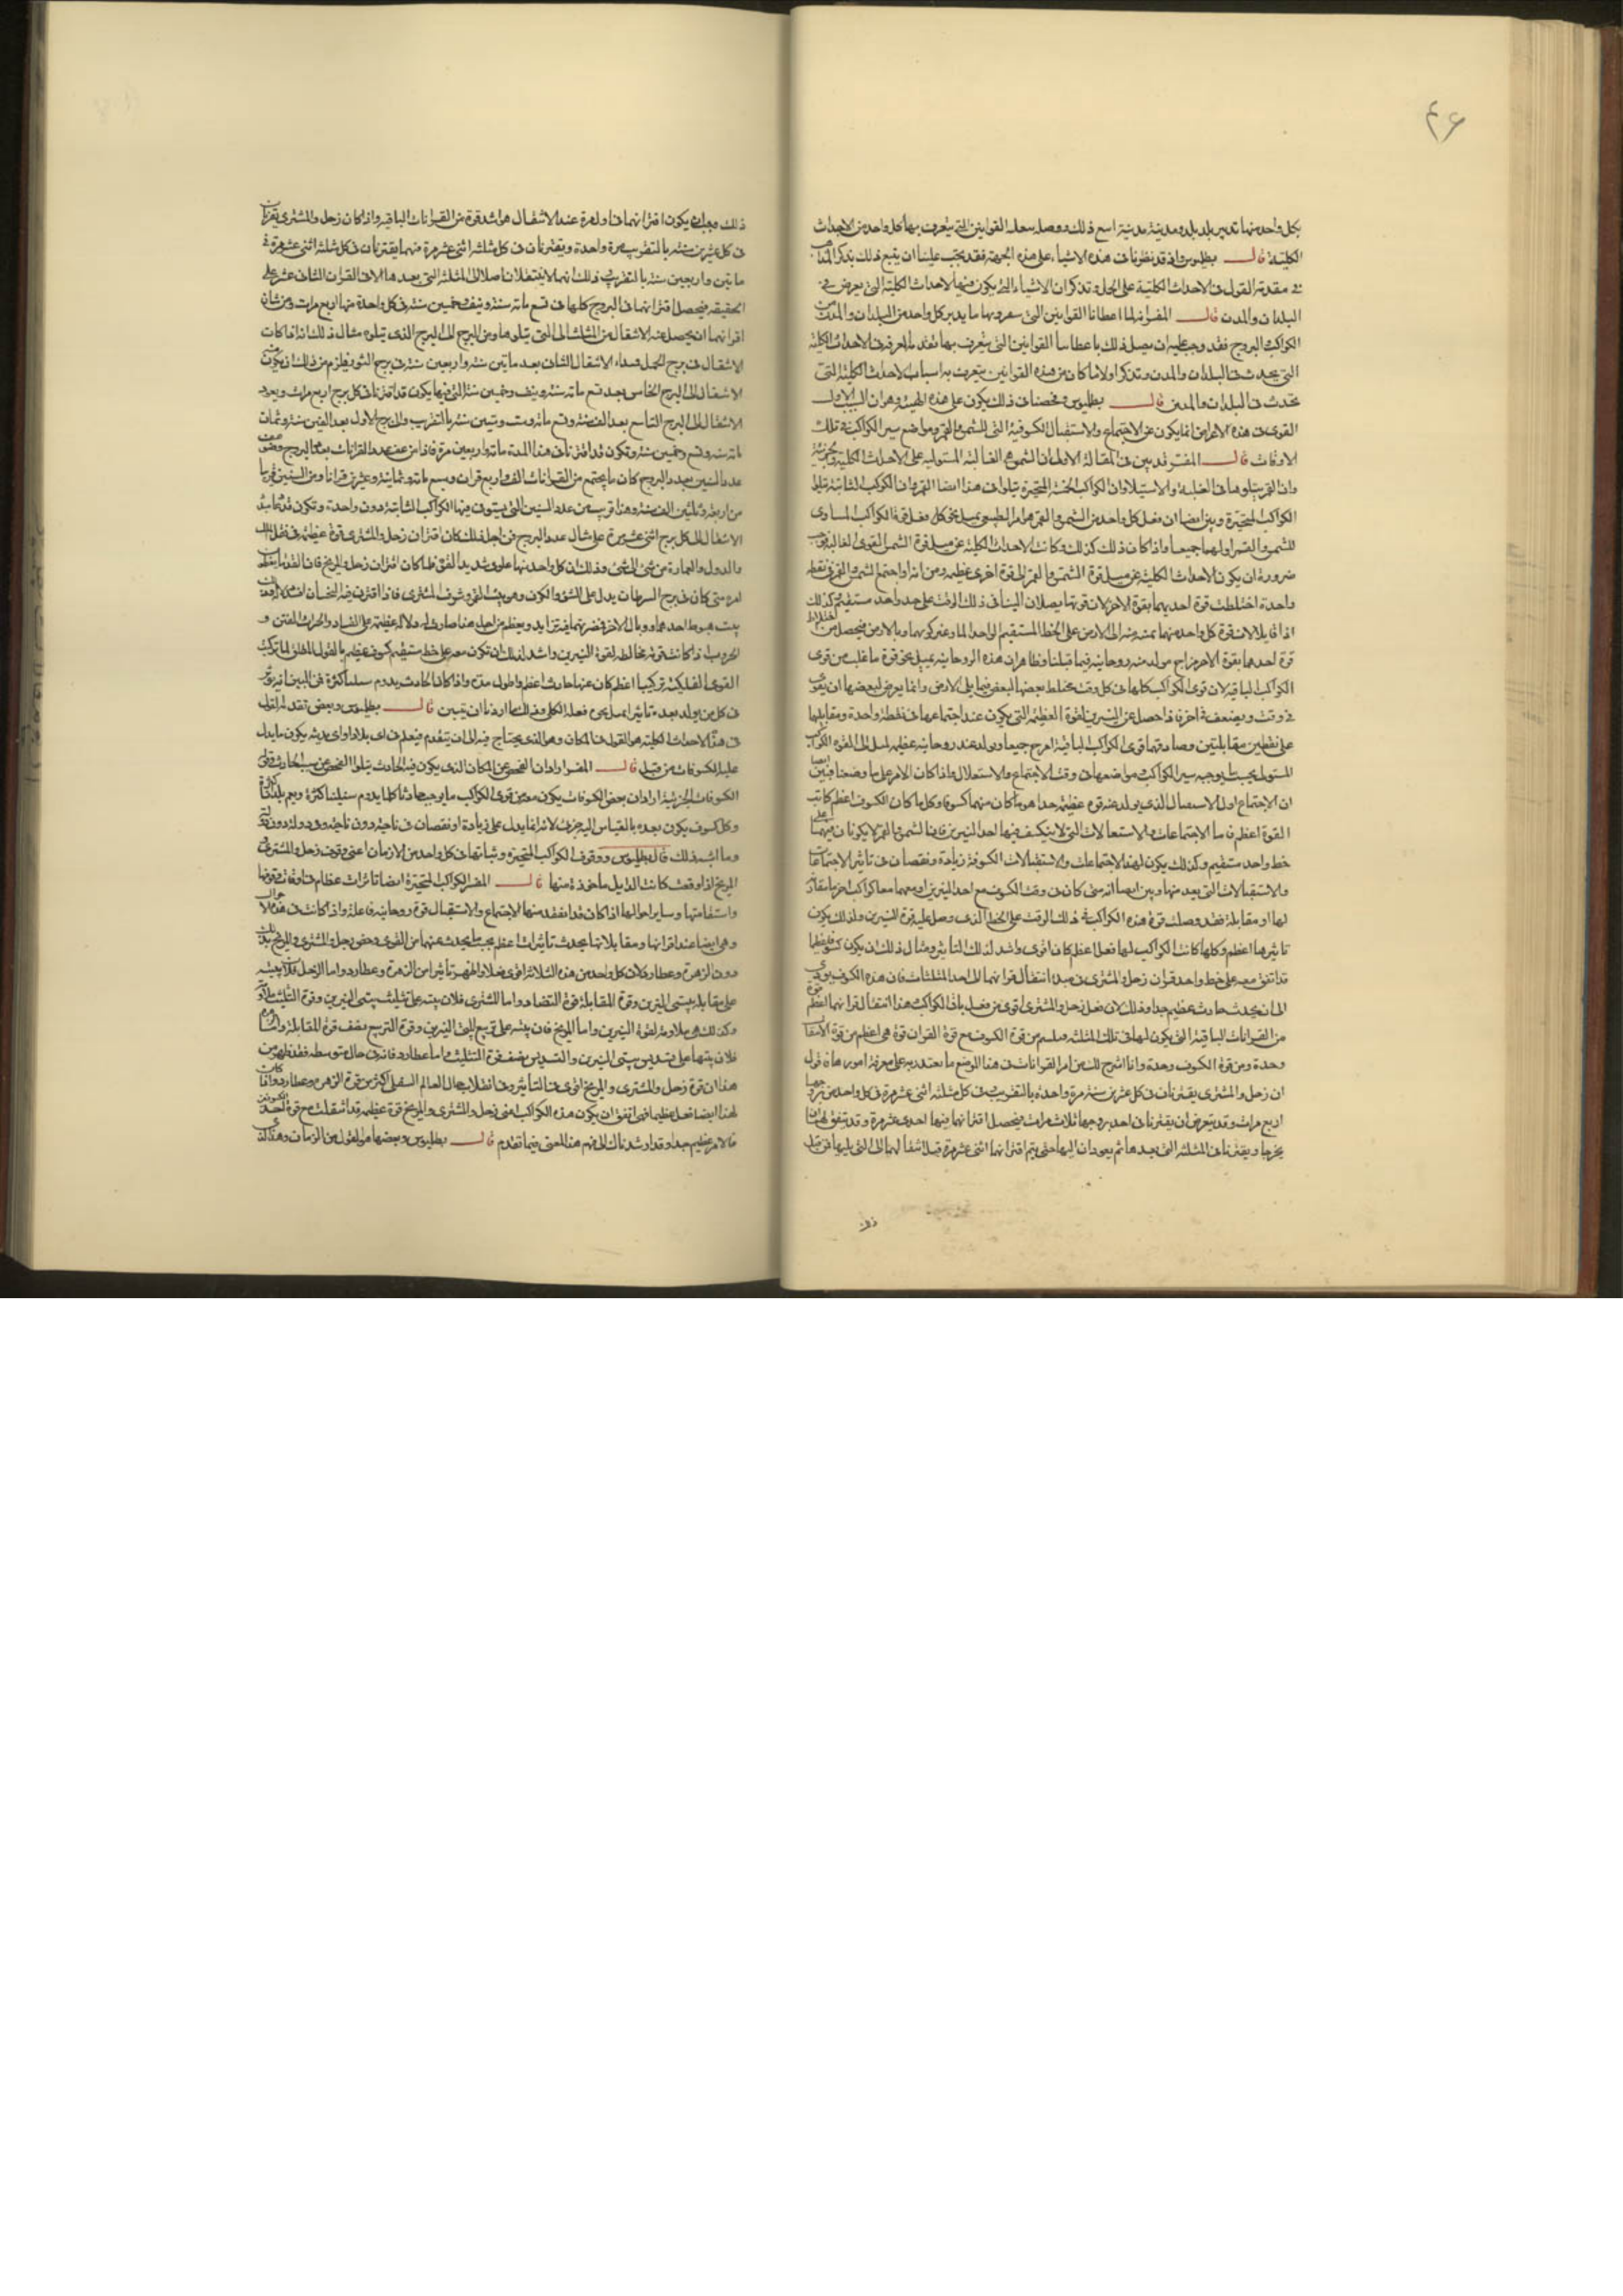 ٤٦
بكل واحد منها تدبير بلد بلد ومدينة مدينة اتبع ذلك ووصله بجل القوانين التي يتعرف بها كل واحد من الاحداث
الكلية قال بطلميوس واذ قد نظرنا في هذه الاشياء على هذه الجهة فقد يجب علينا ان يتبع ذلك بذكر
في مقدمة القول في الاحداث الكلية على الجملة وتذكر ان الاشياء التي يكون منها الاحداث الكلية التي يعرض في
البلدان والمدن قال المفسر انه لما اعطانا القوانين التي بها ما يدبر كل واحد من البلدان والمدن من
الكواكب والبروج فقد وجب عليه ان يصل ذلك باعطائنا القوانين التي يتعرف بها الاحداث الكلية
التي يحدث في البلدان والمدن وتذكر اولا ما كان من هذه القوانين يتعرف به اسباب الاحداث الكلية التي
تحدث في البلدان والمدن قال بطلميوس وفحصنا في ذلك يكون على هذه الهيئة وهو ان السبب الاول
القوي في هذه الاعراض انما يكون عن الاجتماع والاستقبال الكسوفية التي للشمس والقمر ومواضع سير الكواكب في تلك
الاوقات قال المفسر قد بين في المقالة الاولى ان الشمس هي الغالبة المستولية على الاحداث الكلية والجزئية
وان القمر يتلوها في الغلبة والاستيلاء وان الكواكب الخمسة المتحيرة تتلو في هذا ايضا القمر وان الكواكب الثابتة تتلو
الكواكب المتحيرة وبين ايضا ان فعل كل واحد من الشمس والقمر هو امر طبيعي يميل نحو كل فعل قوة الكواكب المساوي
للشمس والقمر او لهما جميعا واذا كان ذلك كذلك وكانت الاحداث الكلية عن ميل قوة الشمس القوي الغالب
ضرورة ان يكون الاحداث الكلية عن ميل قوة الشمس والقمر الى قوة اخرى عظيمة ومن انه اذا اجتمع الشمس والقمر في نقطة
واحدة اختلطت قوة احديهما بقوة الاخر لان قوتهما يصلان الينا في ذلك الوقت على حد واحد مستقيم كذلك
اذا تقابلا لان قوة كل واحد منهما تمتد منه الى الارض على الخط المستقيم الواحد المار بمركزيهما وبالارض فيحصل من اختلاط
قوة احدهما بقوة الاخر مزاج يتولد منه روحانية فيما قبلنا وظاهر ان هذه الروحانية تميل نحو قوة ما غلب من قوى
الكواكب الباقية لان قوى الكواكب كلها في كل وقت مختلط بعضها بالبعض فيما يلي الارض وانما يعرض لبعضها ان يقوى
في وقت ويضعف في اخر فاذا حصل عن النيرين القوة العظيمة التي يكون عند اجتماعهما في نقطة واحدة ومقابلتهما
على نقطتين متقابلتين وصادفتها قوى الكواكب الباقية امتزج جميعا وتولد عند روحانية عظيمة تميل الى القوة الكوكب
المستولي بحسب ما يوجبه سير الكواكب ومواضعها في وقت الاجتماع والاستقبال واذا كان الامر على ما وصفنا فبين ايضا
ان الاجتماع او الاستقبال الذي يتولد عنه قوة عظيمة جدا هو ما كان منهما كسوفا وكلما كان الكسوف اعظم كانت
القوة اعظم فاما الاجتماعات والاستقبالات التي لا ينكسف فيها احد النيرين فان الشمس والقمر لا يكونان فيهما على
خط واحد مستقيم وكذلك يكون لهذه الاجتماعات والاستقبالات الكسوفية زيادة ونقصان في تاثير الاجتماعات
والاستقبالات التي بعد منها وبين ايضا انه متى كان في وقت الكسوف مع احد النيرين او معهما معا كواكب اخر مقارنة
لها او مقابلة فقد وصلت قوة هذه الكواكب في ذلك الوقت على الخط الذي وصل عليه قوة النيرين ولذلك يكون
تاثيرها اعظم وكلما كانت الكواكب لها فعل اعظم كان اقوى واشد لذلك التاثير ومثال ذلك ان يكون كسوف عظيما
قد اتفق معه على خط واحد قران زحل والمشتري في مبدا انتقال قرانهما الى احد المثلثات فان هذه الكسوف يؤدي
الى ان يحدث حادث عظيم جدا وذلك لان فعل زحل والمشتري اقوى من فعل باقي الكواكب وهذا انتقال قرانهما اعظم قوة
من القرانات الباقية التي يكون لهما في تلك المثلثة وسلم من قوة الكسوف مع قوة القران قوة هي اعظم من قوة الانتقال
وحدة ومن قوة الكسوف وحدة وانا اشرح لك من امر القرانات في هذا الموضع ما يعتد به على معرفة امورها فاقول
ان زحل والمشتري يقترنان في كل عشرين سنة مرة واحدة بالتقريب في كل مثلثة اثني عشر مرة في كل واحد من بروجها
اربع مرات وقد يتعرض ان يقترنا في احد بروجها ثلاث مرات فيحصل اقترانهما فيها احدى عشر مرة وقد يتفق لهما ان
يخرجا ويقترنا في المثلثة التي بعدها ثم يعودان اليها حتى يتم اقترانهما اثني عشر مرة قبل انتقالهما الى التي يليها فمن قبل
ذلك
ذلك وجب ان يكون اقترانهما في اول مرة عند الانتقال هو اشد قوة من القرانات الباقية واذا كان زحل والمشتري يقترنان
في كل عشرين سنة بالتقريب مرة واحدة ويقترنان في كل مثلثة اثني عشر مرة فهما يقترنان في كل مثلثة اثني عشر مرة في
مائتين واربعين سنة بالتقريب وذلك انهما لا ينتقلان اصلا الى المثلثة التي بعدها الا في القران الثاني عشر على
الحقيقة فيحصل اقترانهما في البروج كلها في تسع مائة سنة ونيف وخمسين سنة في كل واحدة منها اربع مرات ومن شان
اقترانهما ان يحصل عند الانتقال من المثلثة الى التي يتلوها ومن البرج الى البرج الذي يتلوه مثال ذلك انه اذا كان
الانتقال في برج الحمل فمبداء الانتقال الثاني بعد مائتين سنة واربعين سنة في برج الثور فيلزم من ذلك ان يكون
الانتقال الى البرج الخامس بعد تسع مائة سنة ونيف وخمسين سنة التي فيها يكون قد اقترنا في كل برج اربع مرات ويعود
الانتقال الى البرج التاسع بعد الف سنة وتسع مائة وست وتسين سنة بالتقريب والى البرج الاول بعد الفين سنة وثمان
مائة سنة وتسع وخمسين سنة وتكون قد اقترنا في هذا المدة مائة واربعين مرة فاذا من عدد القرانات بعدد البروج وضوعف
عدد السنين بعدد البروج كان ما يجتمع من القرانات الف واربع قران وسبع مائة وثمانية وعشرين قرانا ومن السنين قريبا
من اربعة وثلثين الف سنة وهذا قريب من عدد السنين التي يستوفي فيها الكواكب الثابتة دورة واحدة وتكون قد عاد
الانتقال الى كل برج اثني عشر مرة على مثال عدد البروج فمن اجل ذلك كان اقتران زحل والمشتري قوة عظيمة في نقل الملك
والدول والعمارة من شيء الى شيء وذلك ان كل واحد منهما علوي شديد القوة فلما كان اقتران زحل والمريخ فان القدماء
امره متى كان في برج السرطان يدل على الشر والكون وهو بيت القمر وشرف المشتري فاذا اقترن فيه النحسان
بيت هبوط احدهما ووبال الاخر فضررهما يتزايد ويعظم من اجل هذا صار في له دلالة عظيمة على الفساد والحراب والفتن و
الحروب اذ كانت قوته مخالطة لقوة النيرين واشد لذلك ان تكون معه على خط مستقيم كسوف عظيم بالقول المطلق لما تركب
القوى الفلكية تركيبا اعظم كان عنها حادث اعظم واطول مدة واذا كان الحادث يدوم سنينا كثيرة فمن البين انه يؤثر
في كل من يولد بعده تاثيرا يميل نحو فعله الكلي وذلك ما اردنا ان يتبين قال بطلميوس وبعض تقدم القول
في هذه الاحداث الكلية هو القول في المكان وهو الذي يحتاج فيه الى ان يتقدم فيعلم في اي بلاد او اي مدينة يكون ما يدل
عليه الكسوفات من قبل قال المفسر اراد ان الفحص عن المكان الذي يكون فيه الحادث يتلوا الفحص عن سبب الحادث وفي
الكسوفات الجزئية اراد ان بعض الكسوفات يكون معه من قوى الكواكب ما يوجب حادثا كليا يدوم سنينا كثيرة ويعم بلدانا كثيرة
وكل كسوف يكون بعده بالقياس اليه جزئي لانه انما يدل على زيادة او نقصان في ناحية دون ناحية وفي دولة دون
وما اشبه ذلك قال بطلميوس ووقوف الكواكب المتحيرة وثباتها في كل واحد من الازمان اعني وقوف زحل والمشتري و
المريخ اذا وقعت كانت الدلايل ماخوذة منها قال المفسر الكواكب المتحيرة ايضا تاثيرات عظام في اوقات وقوفها
واستقامتها وساير احوالها اذا كان قد انعقد منها الاجتماع والاستقبال قوة روحانية فاعلة واذا كانت في هذه الاحوال
وهي ايضا عند اقترانها ومقابلاتها يحدث تاثيرات اعظم بحسب ما يحدث عنهما من القوى وخص زحل والمشتري والمريخ بذلك
دون الزهرة وعطارد لان كل واحد من هذه الثلاثة اقوى فعلا واظهر تاثيرا من الزهرة وعطارد واما لزحل فلان بيتيه
على مقابلة بيتي النيرين وقوة المقابلة قوة التضاد واما للمشتري فلان بيته على تثليث بيتي النيرين وقوة التثليث ملاومة
وكذلك هي ملاومة لقوة النيرين واما المريخ فان بيتيه على تربيع لبيتي النيرين وقوة التربيع نصف قوة المقابلة واما الزهرة
فلان بيتها على تسديس بيتي النيرين والتسديس نصف قوة التثليث واما عطارد فانه في حال متوسطه فقد ظهر من
هذا ان قوة زحل والمشتري والمريخ اقوى في التاثير وفي انقلاب حال العالم السفلي اكثر من قوة الزهرة وعطارد وان كان
لهذا ايضا فعل عظيم فمتى اتفق ان يكون هذه الكواكب اعني زحل والمشتري والمريخ قوة عظيمة قد انتقلت مع قوة احد الكسوفين
فالامر عظيم جدا وقد ارشدناك الى فهم هذا المعنى فيما تقدم قال بطلميوس وبعضها هو القول من الزمان وهذا الذي